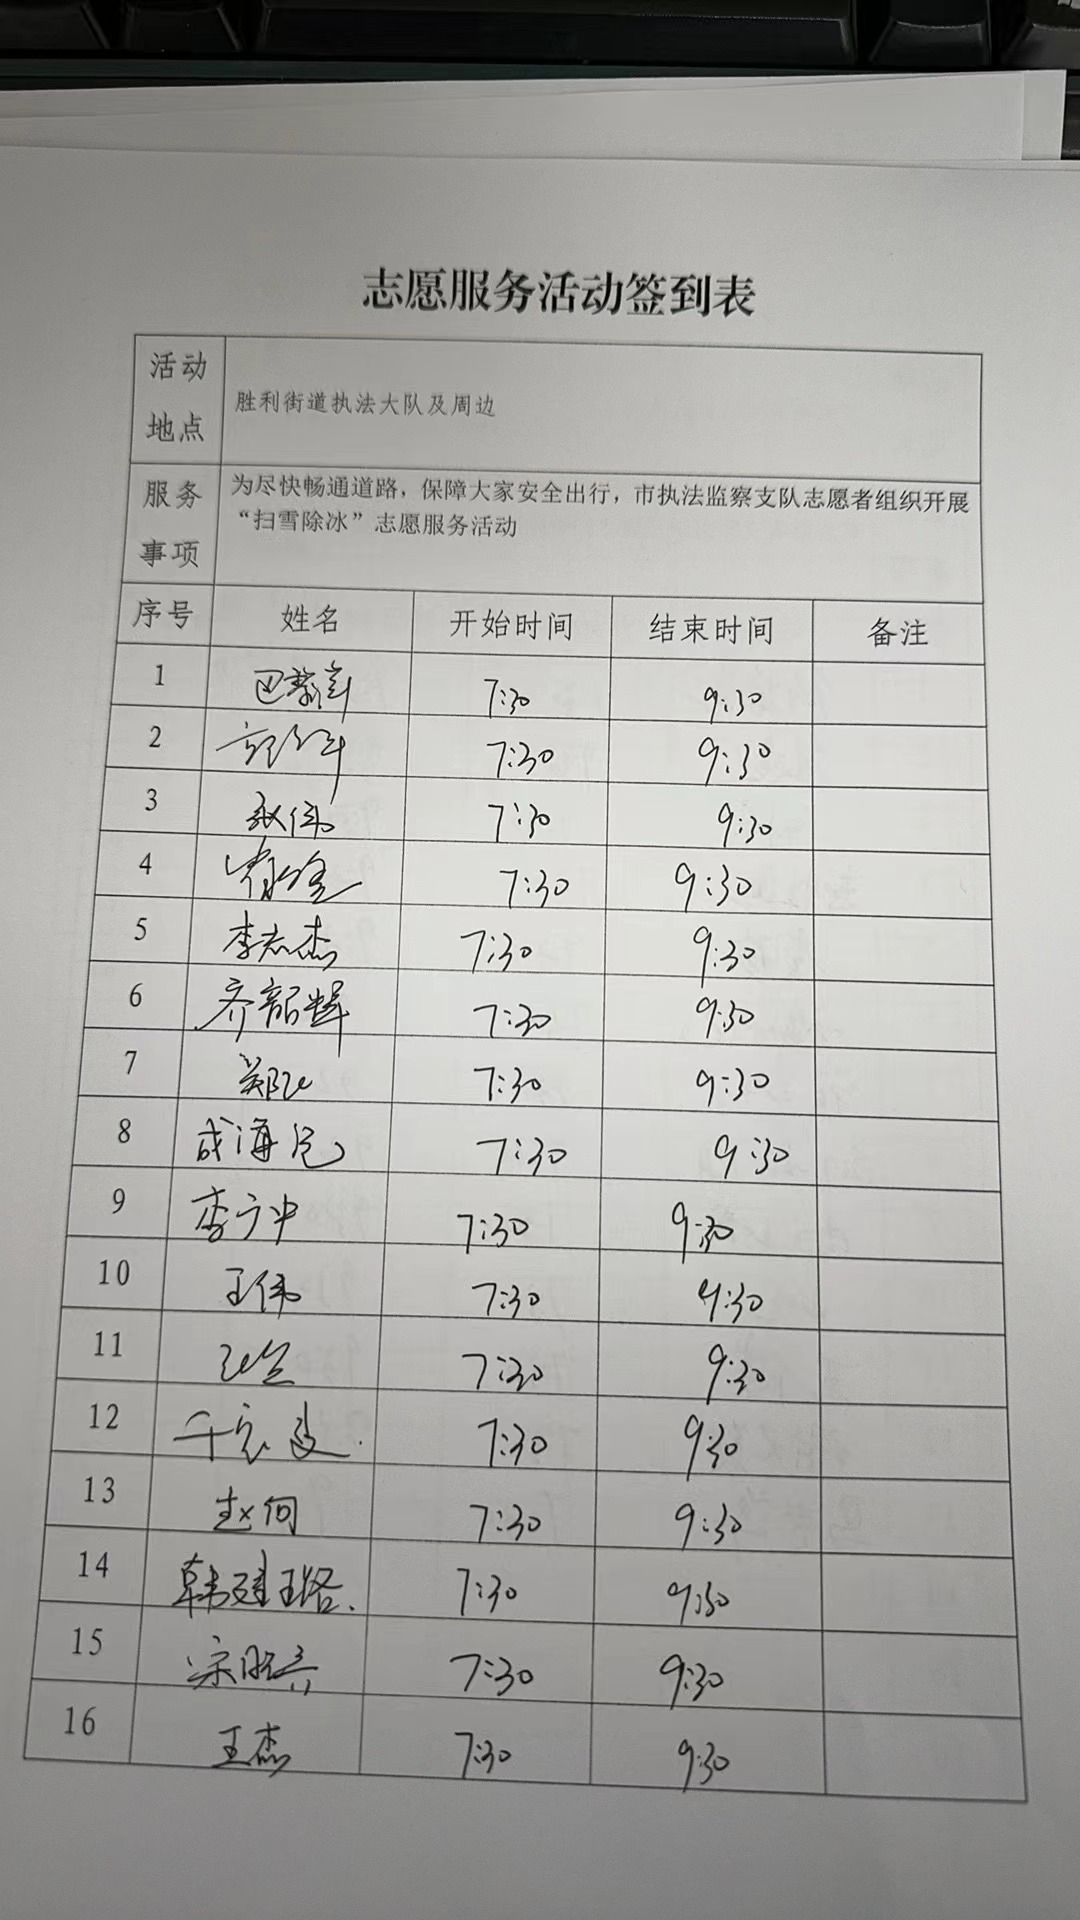 志愿服务活动签到表
活动地点 胜利街道执法大队及周边
服务事项 为尽快畅通道路，保障大家安全出行，市执法监察支队志愿者组织开展
“扫雪除冰”志愿服务活动
序号 姓名 开始时间 结束时间 备注
1 7:30 9:30
2 7:30 9:30
3 7:30 9:30
4 7:30 9:30
5 李志杰 7:30 9:30
6 齐韶辉 7:30 9:30
7 7:30 9:30
8 7:30 9:30
9 李广中 7:30 9:30
10 王伟 7:30 9:30
11 7:30 9:30
12 7:30 9:30
13 赵何 7:30 9:30
14 7:30 9:30
15 7:30 9:30
16 王杰 7:30 9:30